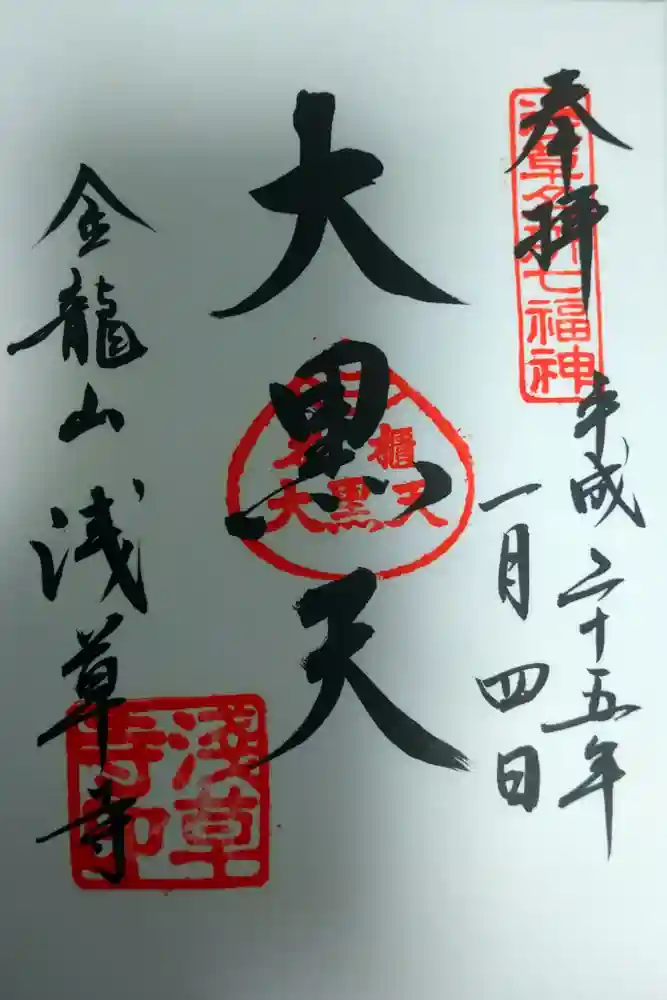 奉拝
浅草名所七福神
平成二十五年
一月四日
大黒天
櫃
大黒天
金龍山
浅草寺
淺草
寺印